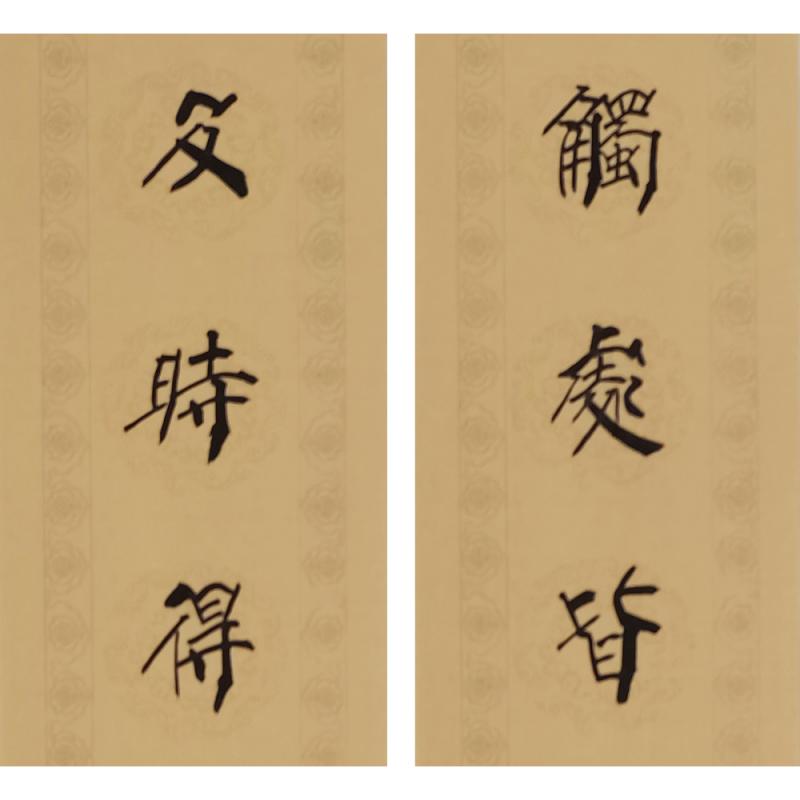 觸處皆
及時得